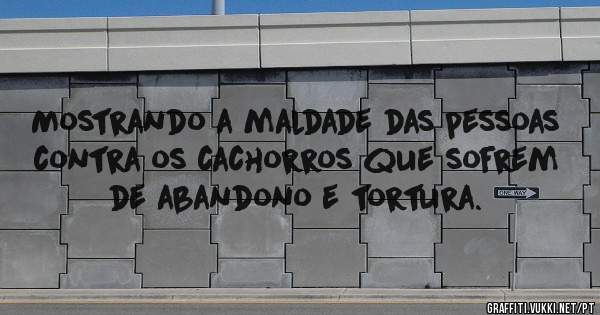 MOSTRANDO A MALDADE DAS PESSOAS
CONTRA OS CACHORROS QUE SOFREM
DE ABANDONO E TORTURA.
ONE WAY
GRAFFITI.VUKKI.NET/PT